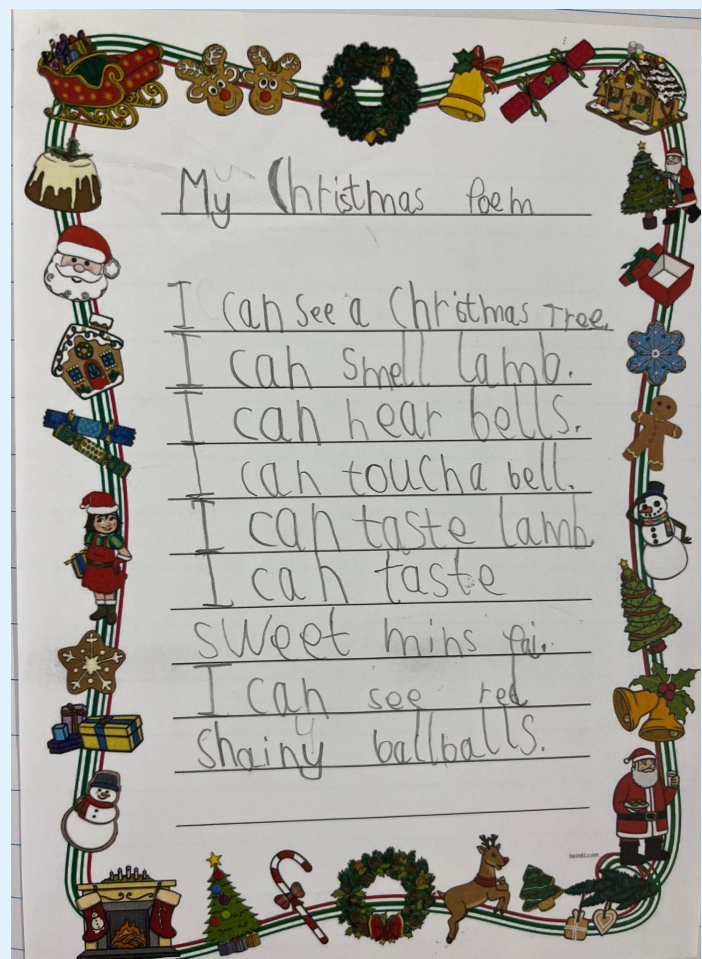 My Christmas Poem
I can see a Christmas Tree.
I can smell lamb.
I can hear bells.
I can touch a bell.
I can taste lamb.
I can taste
sweet mins pai.
I can see red
Shainy ballballs.
twinkl.com